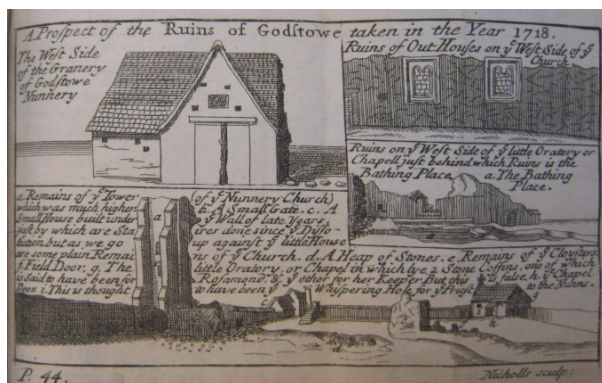 A Prospect of the Ruins of Godstowe taken in the Year 1718.
The West Side
of the Granery
of Godstowe
Nunnery
Ruins of Out Houses on yᵉ West Side of yᵉ
Church.
Ruins on yᵉ West Side of yᵉ little Oratory or
Chapell just behind which Ruins is the
Bathing Place a. The Bathing
Place.
a. Remains of yᵉ Tower (of yᵉ Nunnery Church)
which was much higher b. A Small Gate. c. A
Small House built under yᵉ Wall of late Years,
just by which are Sta ires done since yᵉ Disso
lution but as we go up against yᵉ little House
are some plain Remai ns of yᵉ Church. d. A Heap of Stones. e. Remains of yᵉ Cloysters.
f. Field Door. g. The little Oratory, or Chapel in which lye 2 Stone Coffins, one of which
is Said to have been for Rosamond. & yᵉ other for her Keeper But this is false. h. yᵉ Chapel
Door. i. This is thought to have been yᵉ Whispering Hole for yᵉ Priest to the Nunns.
a
c
g
h
P. 44.
Nicholls sculp: